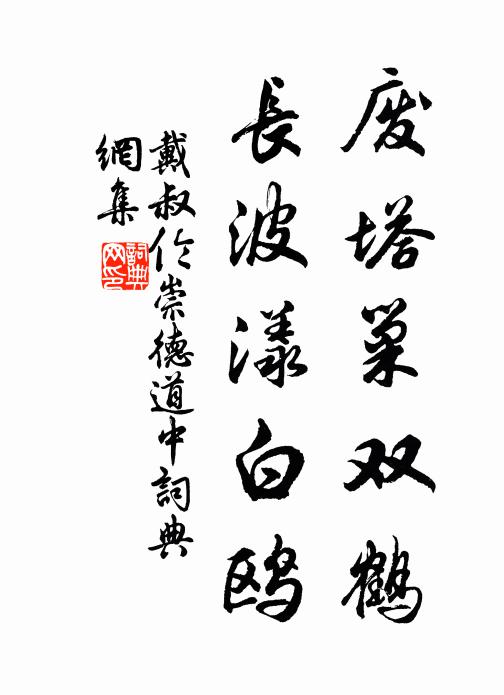 废塔巢双鹤
長波漾白鸥
戴叔伦崇德道中詞典
網集
詞典
网印